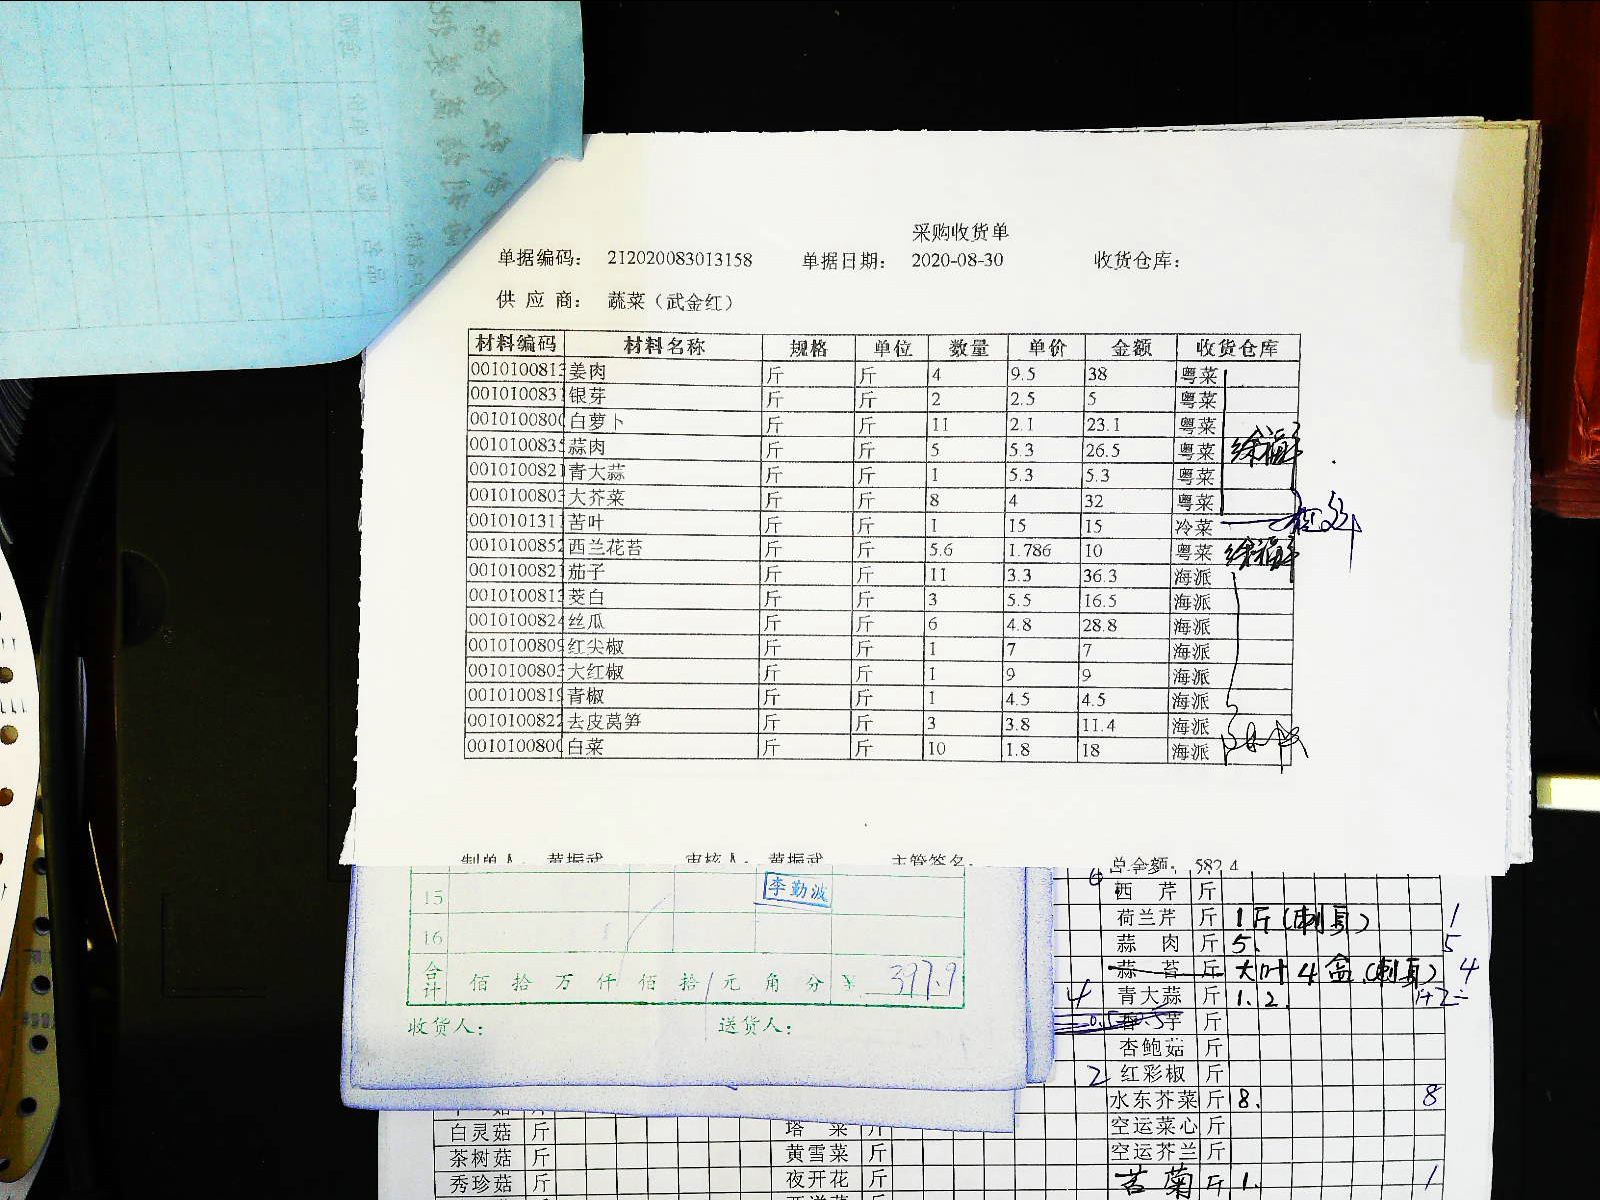 采购收货单
单据编码： 212020083013158 单据日期： 2020-08-30 收货仓库：
供 应 商： 蔬菜（武金红）
材料编码 材料名称 规格 单位 数量 单价 金额 收货仓库
0010100813 姜肉 斤 斤 4 9.5 38 粤菜
0010100831 银芽 斤 斤 2 2.5 5 粤菜
001010080 白萝卜 斤 斤 11 2.1 23.1 粤菜
0010100835 蒜肉 斤 斤 5 5.3 26.5 粤菜
0010100821 青大蒜 斤 斤 1 5.3 5.3 粤菜
0010100803 大芥菜 斤 斤 8 4 32 粤菜
0010101311 苦叶 斤 斤 1 15 15 冷菜
0010100852 西兰花苔 斤 斤 5.6 1.786 10 粤菜
0010100821 茄子 斤 斤 11 3.3 36.3 海派
0010100813 茭白 斤 斤 3 5.5 16.5 海派
0010100824 丝瓜 斤 斤 6 4.8 28.8 海派
0010100809 红尖椒 斤 斤 1 7 7 海派
0010100803 大红椒 斤 斤 1 9 9 海派
0010100819 青椒 斤 斤 1 4.5 4.5 海派
0010100822 去皮莴笋 斤 斤 3 3.8 11.4 海派
001010080 白菜 斤 斤 10 1.8 18 海派
制单人： 黄振武 审核人： 黄振武 主管签名： 总金额： 582.4
15 李勤波
16
合计 佰 拾 万 仟 佰 拾 元 角 分 ￥ 397.9
收货人： 送货人：
西 芹 斤
荷兰芹 斤 1斤(刺身) 1
蒜 肉 斤 5. 5
蒜 苔 斤 大叶4盒(刺身) 4
4 青大蒜 斤 1.2. 1+2=
香芋 斤
杏鲍菇 斤
2 红彩椒 斤
水东芥菜 斤 8. 8
白灵菇 斤 塔 菜 斤 空运菜心 斤
茶树菇 斤 黄雪菜 斤 空运芥兰 斤
秀珍菇 斤 夜开花 斤 苦菊 斤 1. 1